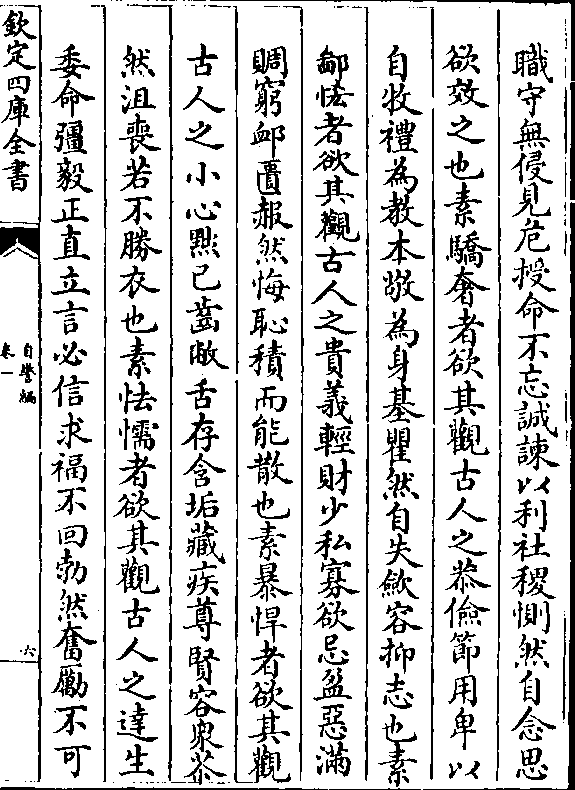 職守無侵見危授命不忘誠諫以利社稷惻然自念思
欲效之也素驕奢者欲其觀古人之恭儉節用卑以
自牧禮為教本敬為身基瞿然自失歛容抑志也素
鄙悋者欲其觀古人之貴義輕財少私寡欲忌盈惡滿
賙窮卹匱赧然悔恥積而能散也素暴悍者欲其觀
古人之小心黜己齒敝舌存含垢藏疾尊賢容衆苶
然沮喪若不勝衣也素怯懦者欲其觀古人之達生
委命彊毅正直立言必信求福不回勃然奮勵不可
欽定四庫全書
自警編
卷一
六